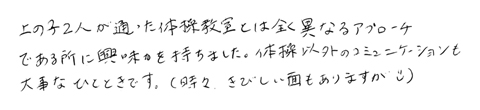 上の子2人が通った体操教室とは全く異なるアプローチ
である所に興味を持ちました。体操以外のコミュニケーションも
大事なひとときです。(時々、きびしい面もありますが☺)